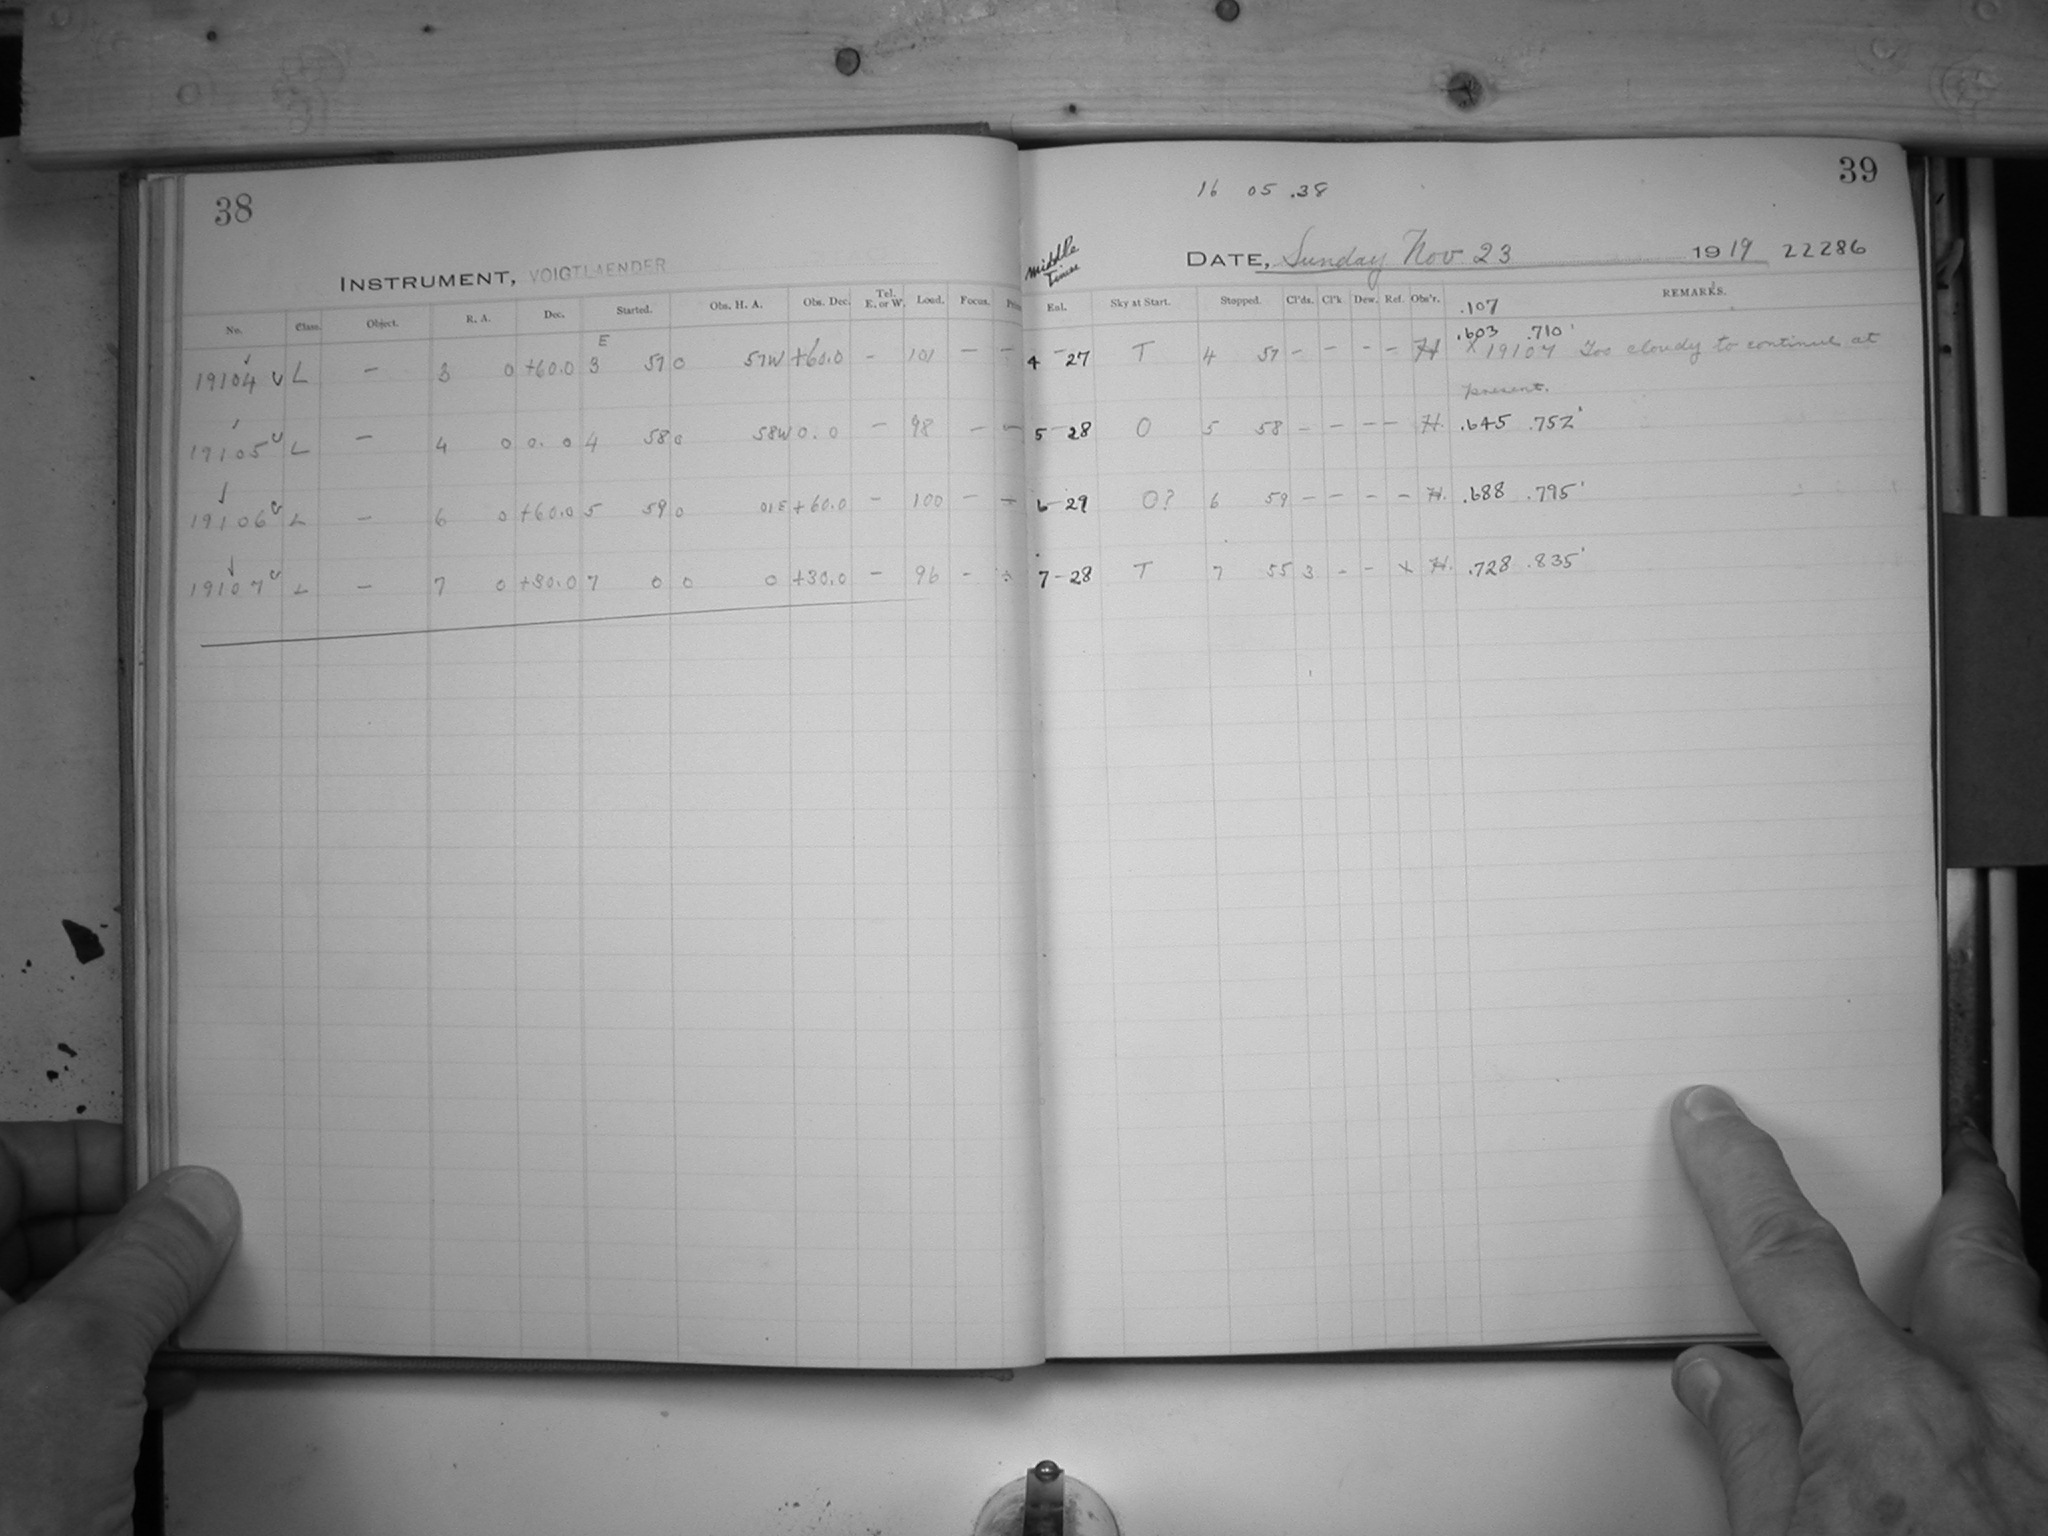 38
INSTRUMENT, VOIGTLAENDER
No. Class. Object. R. A. Dec. Started. Obs. H. A. Obs. Dec. Tel. E. or W. Load. Focus.
E
19104 L – 3 0 +60.0 3 57 0 57W +60.0 – 101 – –
19105 L – 4 0 0.0 4 58 0 58W 0.0 – 98 – –
19106 L – 6 0 +60.0 5 59 0 01E +60.0 – 100 – –
19107 L – 7 0 +30.0 7 0 0 0 +30.0 – 96 –
39
16 05 .38
Middle Time
DATE, Sunday Nov 23 1919 22286
Enl. Sky at Start. Stopped. Cl'ds. Cl'k Dew. Ref. Obs'r. REMARKS.
.107
.603 .710
4–27 T 4 57 – – – – H X 19107 Too cloudy to continue at
present.
5–28 O 5 58 – – – – H. .645 .752
6–29 O? 6 59 – – – – H. .688 .795
7–28 T 7 55 3 – – x H. .728 .835